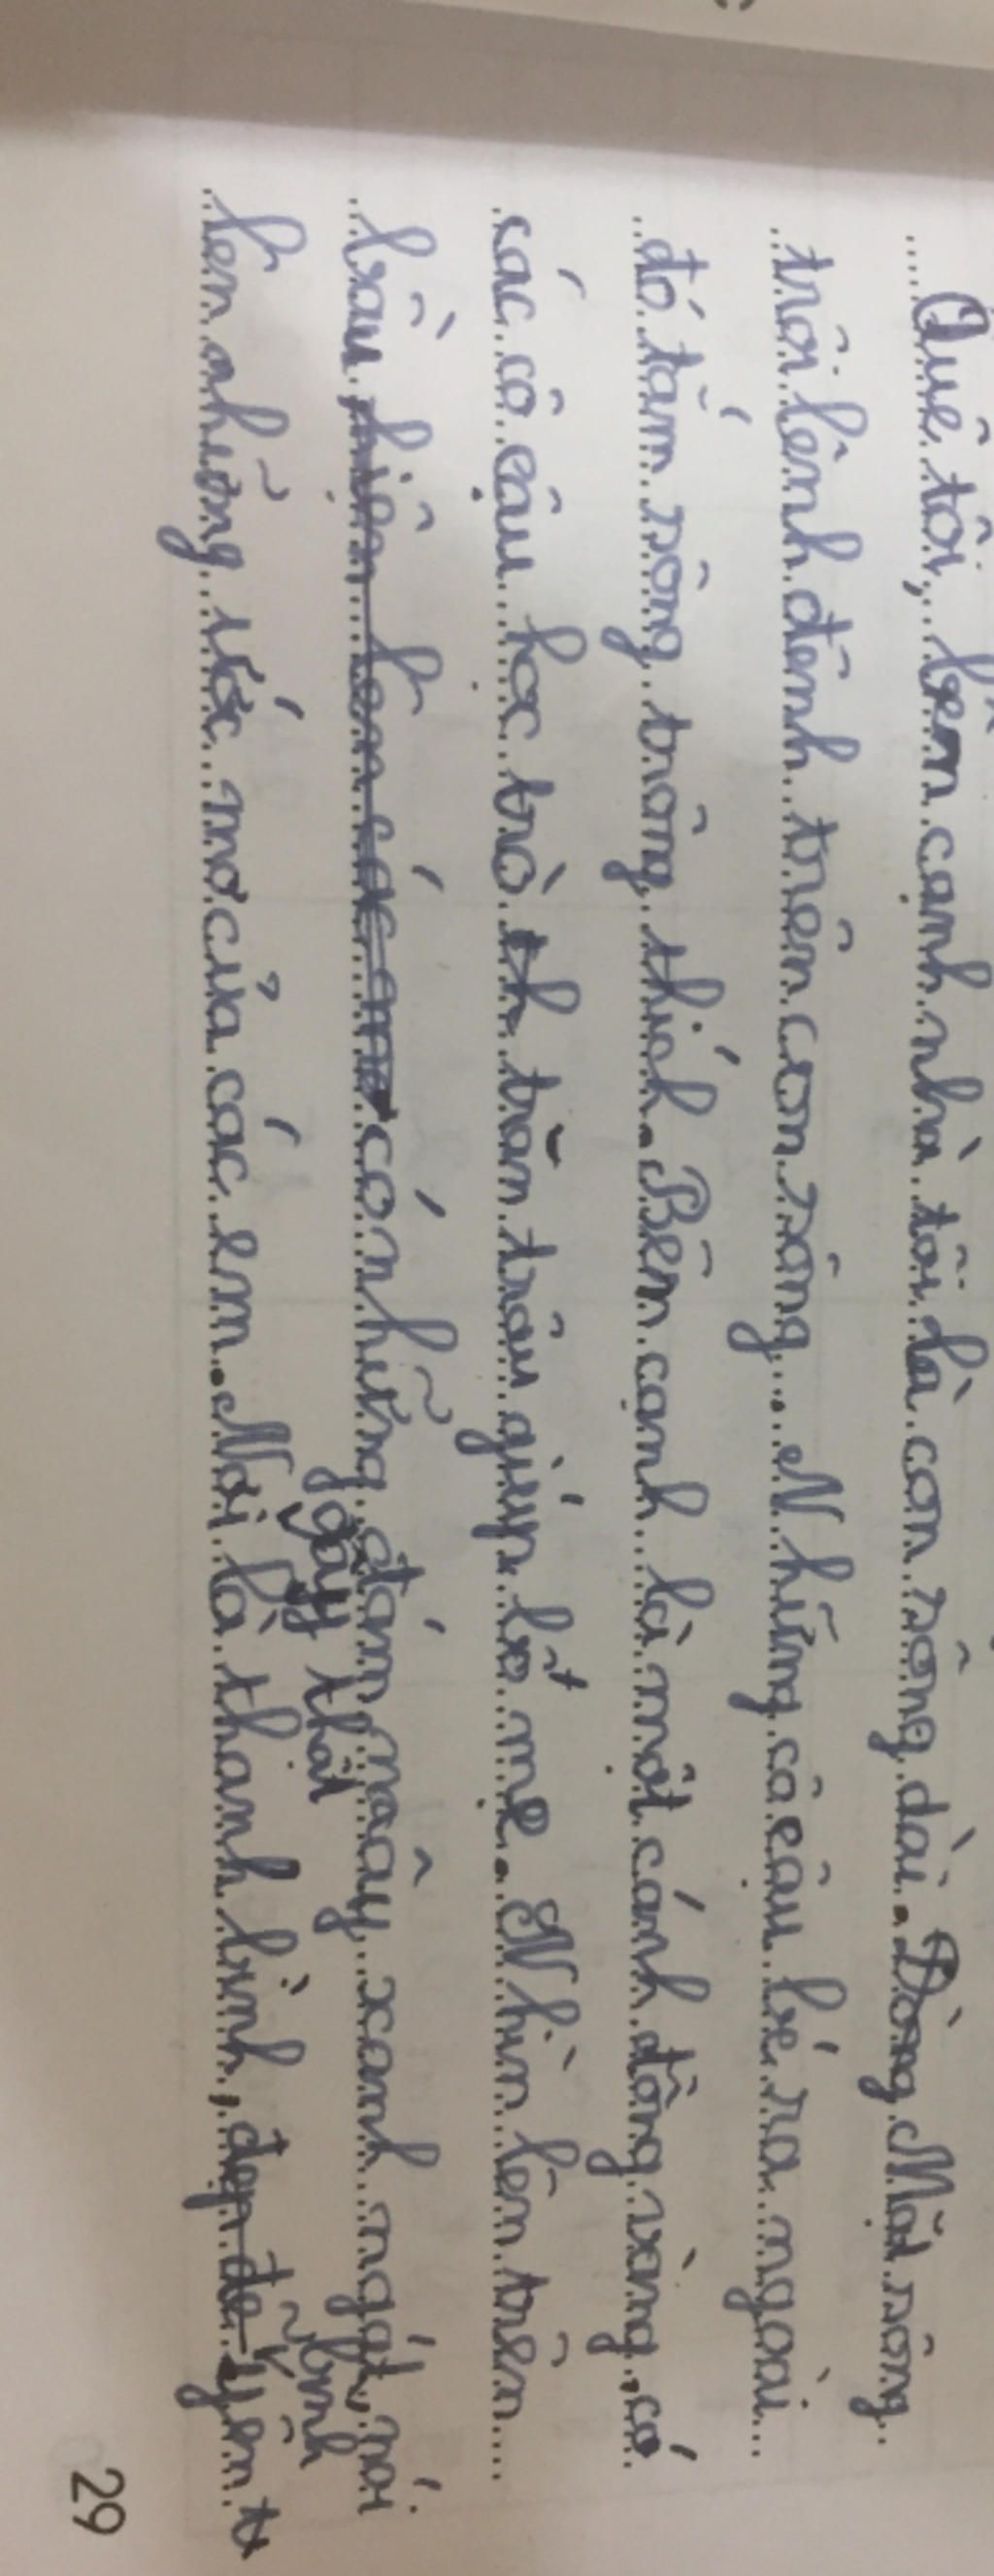 Quê tôi, bên cạnh nhà tôi là con sông dài. Dòng Mặt sông
trôi lênh đênh trên con sông. Những cô cậu bé ra ngoài
đó tắm sông trông thích. Bên cạnh là một cánh đồng vàng, có
các cô cậu học trò th trăn trâu giúp bố mẹ. Nhìn lên trên
bầu, hiện lem các em có những đám mây xanh ngát, nói
lên những ước mơ của các em. Nơi đây thật là thanh bình, đẹp đẽ yên bình
29